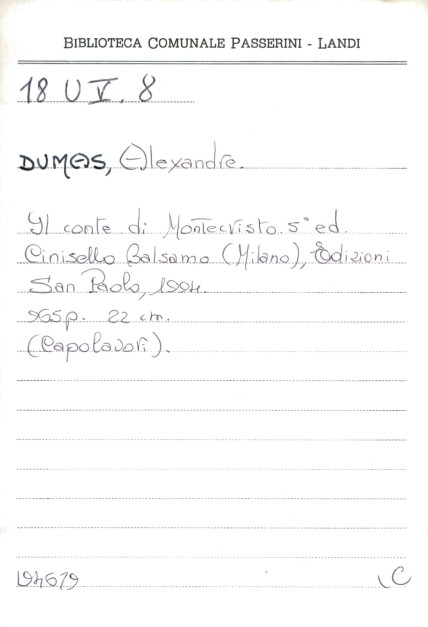 BIBLIOTECA COMUNALE PASSERINI - LANDI
18 U V. 8
DUMAS, Alexandre.
Il conte di Montecristo. 5° ed.
Cinisello Balsamo (Milano), Edizioni
San Paolo, 1994.
965 p. 22 cm.
(Capolavori).
194679
C